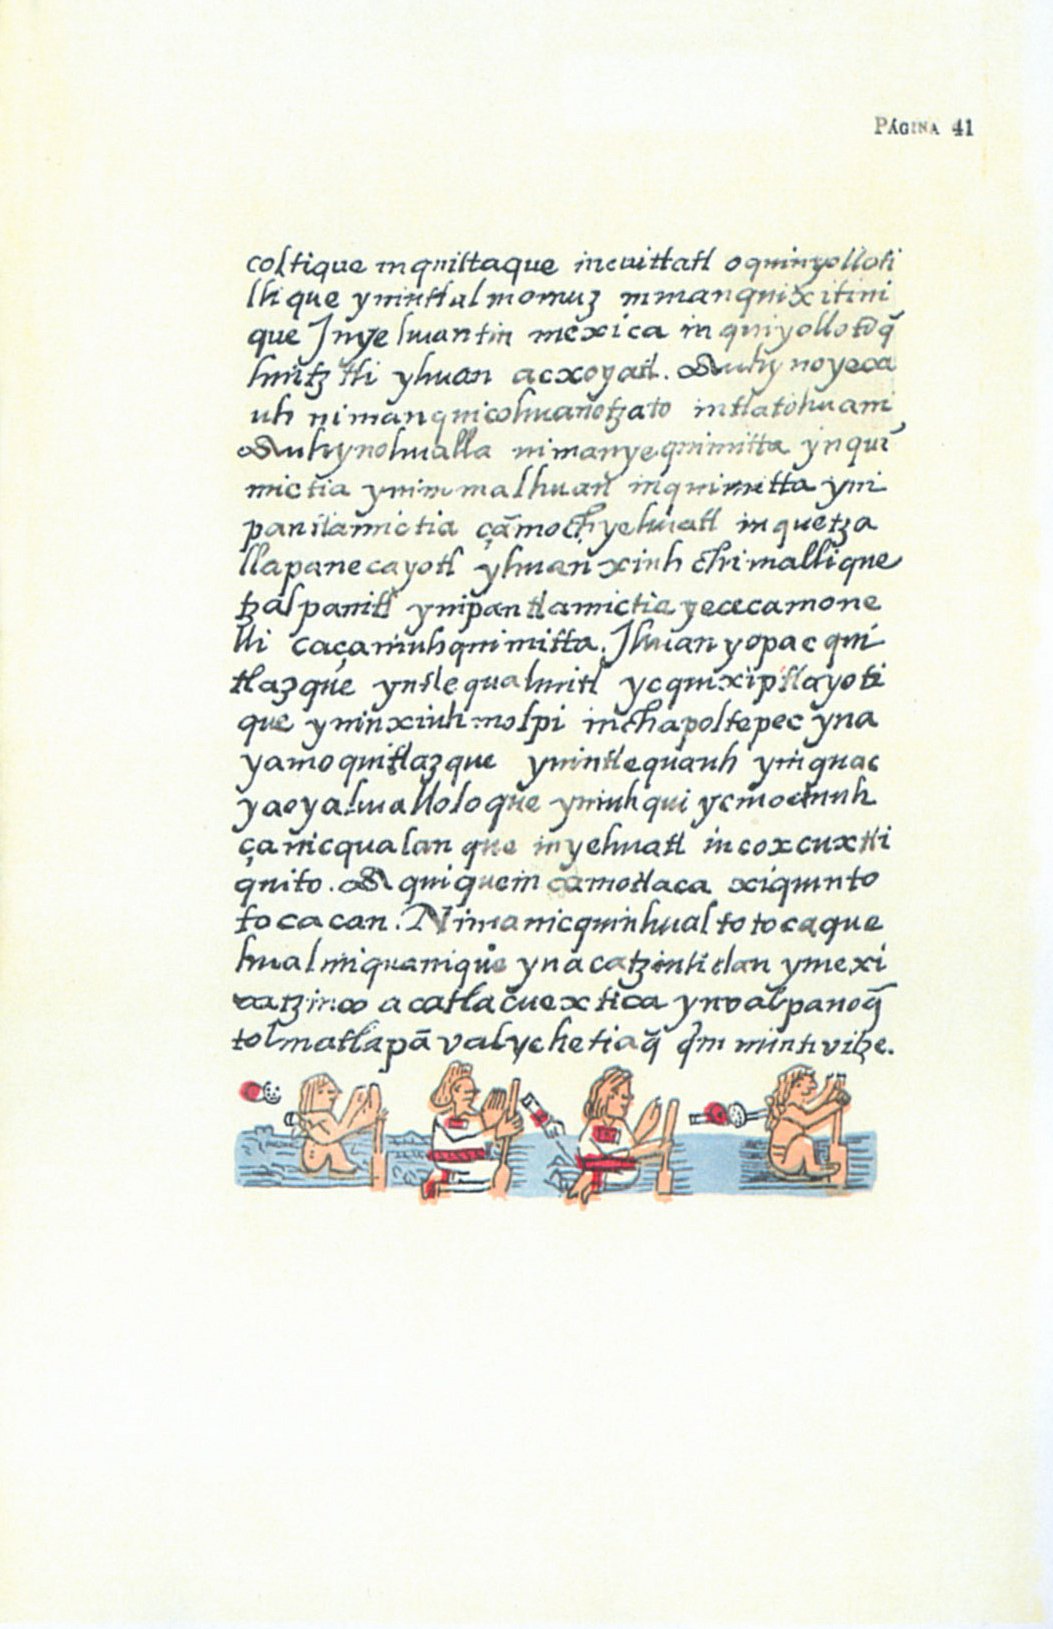 PÁGINA 41
coltique inquittaque incuittatl oquinyolloti
lli que ynintlalmomuz inmanquixitini
que Jnyehuantin mexica in quiyollotōq̄
huitztli yhuan acxoyatl. Auh ynoyeca
uh nimanquicohuanotzato intlatohuani
Auh ynohualla nimanyequimitta ynqui
mictia yninmalhuan inquimitta yni
pantlamictia çāmochyehuatl inquetza
llapanecayotl yhuan xiuh chimallique
tzalpanitl ynipantlamictia yececamone
lli caçaniuhquimitta. Jhuan yopac qui
tlazque yntlequahuitl ycquixiptlayoti
que yninxiuhmolpi inchapoltepec yna
yamoquitlazque ynintlequauh yniquac
yaoyahualloloque yniuhqui ycmochiuh
çanicqualanque inyehuatl incoxcuxtli
quito. Aquiquein camotlaca xiquinto
tocacan. Nimanicquinhualtotocaque
hualmiquanique ynacatzintitlan ymexi
catzinco acatlacuextica ynoalpanoq̄
tolmatlapā valychetiaq̄ q̄m mintivitze.